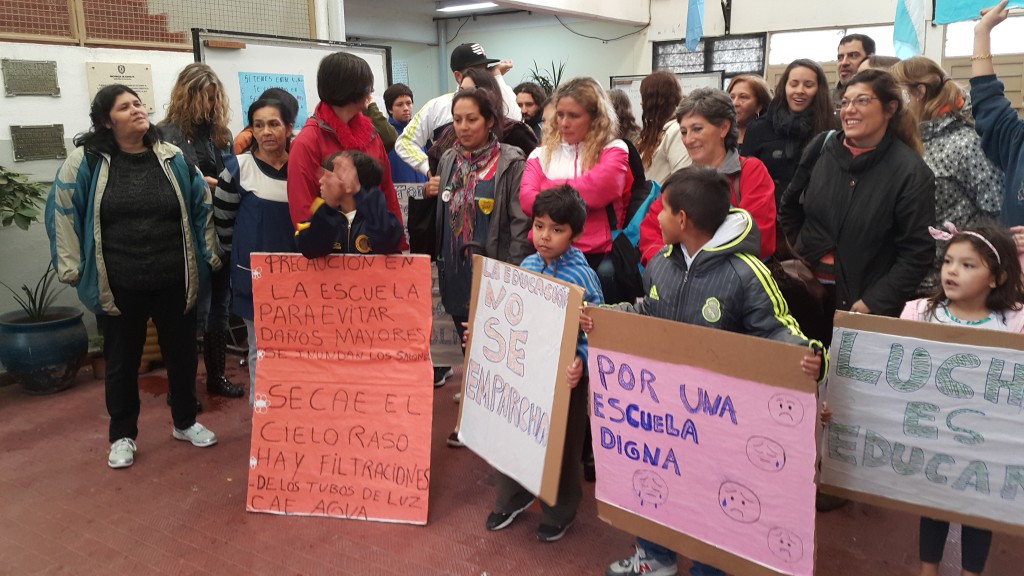 PRECAUCION EN
LA ESCUELA
PARA EVITAR
DAÑOS MAYORES
SE INUNDAN LOS SALONES
SECAE EL
CIELO RASO
HAY FILTRACIONES
DE LOS TUBOS DE LUZ
CAE AGUA
LA EDUCACIÓN
NO
SE
EMPARCHA
POR UNA
ESCUELA
DIGNA
LUCH
ES
EDUCAR